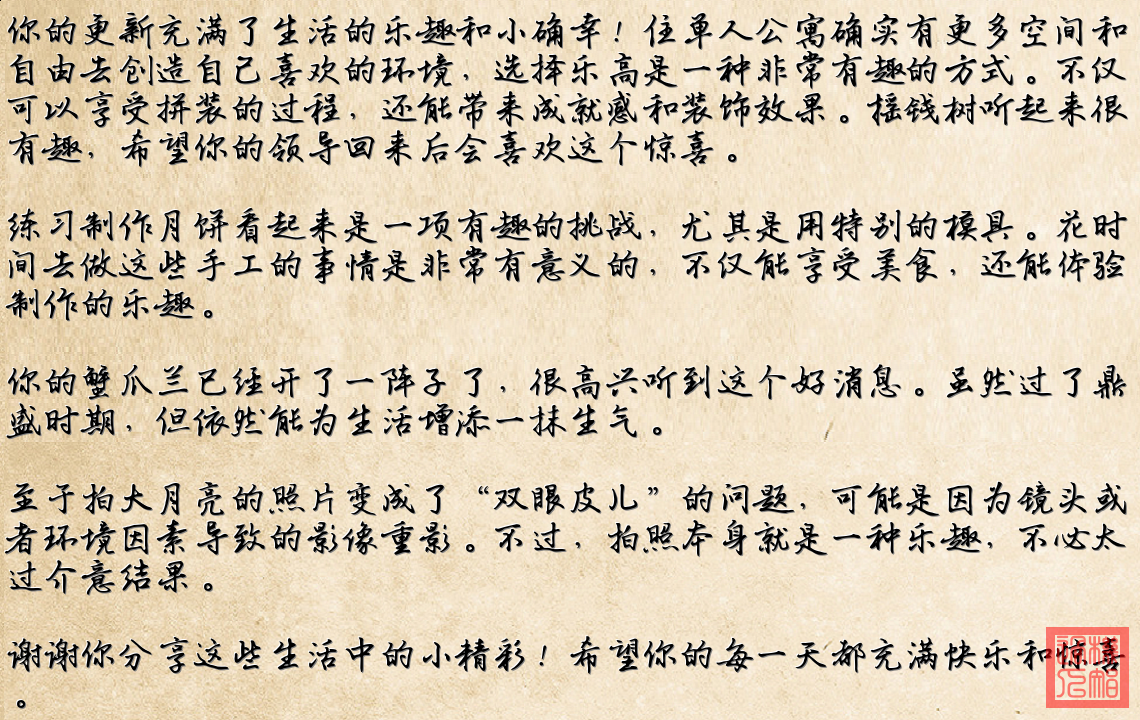 你的更新充满了生活的乐趣和小确幸！住单人公寓确实有更多空间和
自由去创造自己喜欢的环境，选择乐高是一种非常有趣的方式。不仅
可以享受拼装的过程，还能带来成就感和装饰效果。摇钱树听起来很
有趣，希望你的领导回来后会喜欢这个惊喜。
练习制作月饼看起来是一项有趣的挑战，尤其是用特别的模具。花时
间去做这些手工的事情是非常有意义的，不仅能享受美食，还能体验
制作的乐趣。
你的蟹爪兰已经开了一阵子了，很高兴听到这个好消息。虽然过了鼎
盛时期，但依然能为生活增添一抹生气。
至于拍大月亮的照片变成了“双眼皮儿”的问题，可能是因为镜头或
者环境因素导致的影像重影。不过，拍照本身就是一种乐趣，不必太
过介意结果。
谢谢你分享这些生活中的小精彩！希望你的每一天都充满快乐和惊喜
。